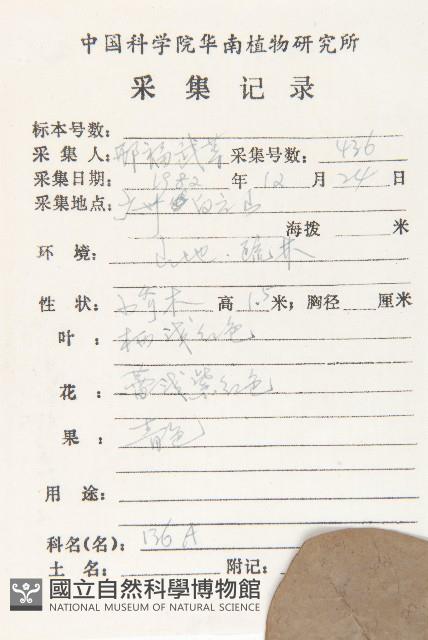 中国科学院华南植物研究所
采集记录
标本号数:
采集人: 邢福武等 采集号数: 436
采集日期: 1982 年 12 月 24 日
采集地点: 广州白云山
海拨 米
环境: 山地.疏林
性状: 小乔木 高 1.5 米; 胸径 厘米
叶: 柄浅红色
花: 蕾浅紫红色
果: 青色
用途:
科名(名): 136A
土名: 附记:
國立自然科學博物館
NATIONAL MUSEUM OF NATURAL SCIENCE